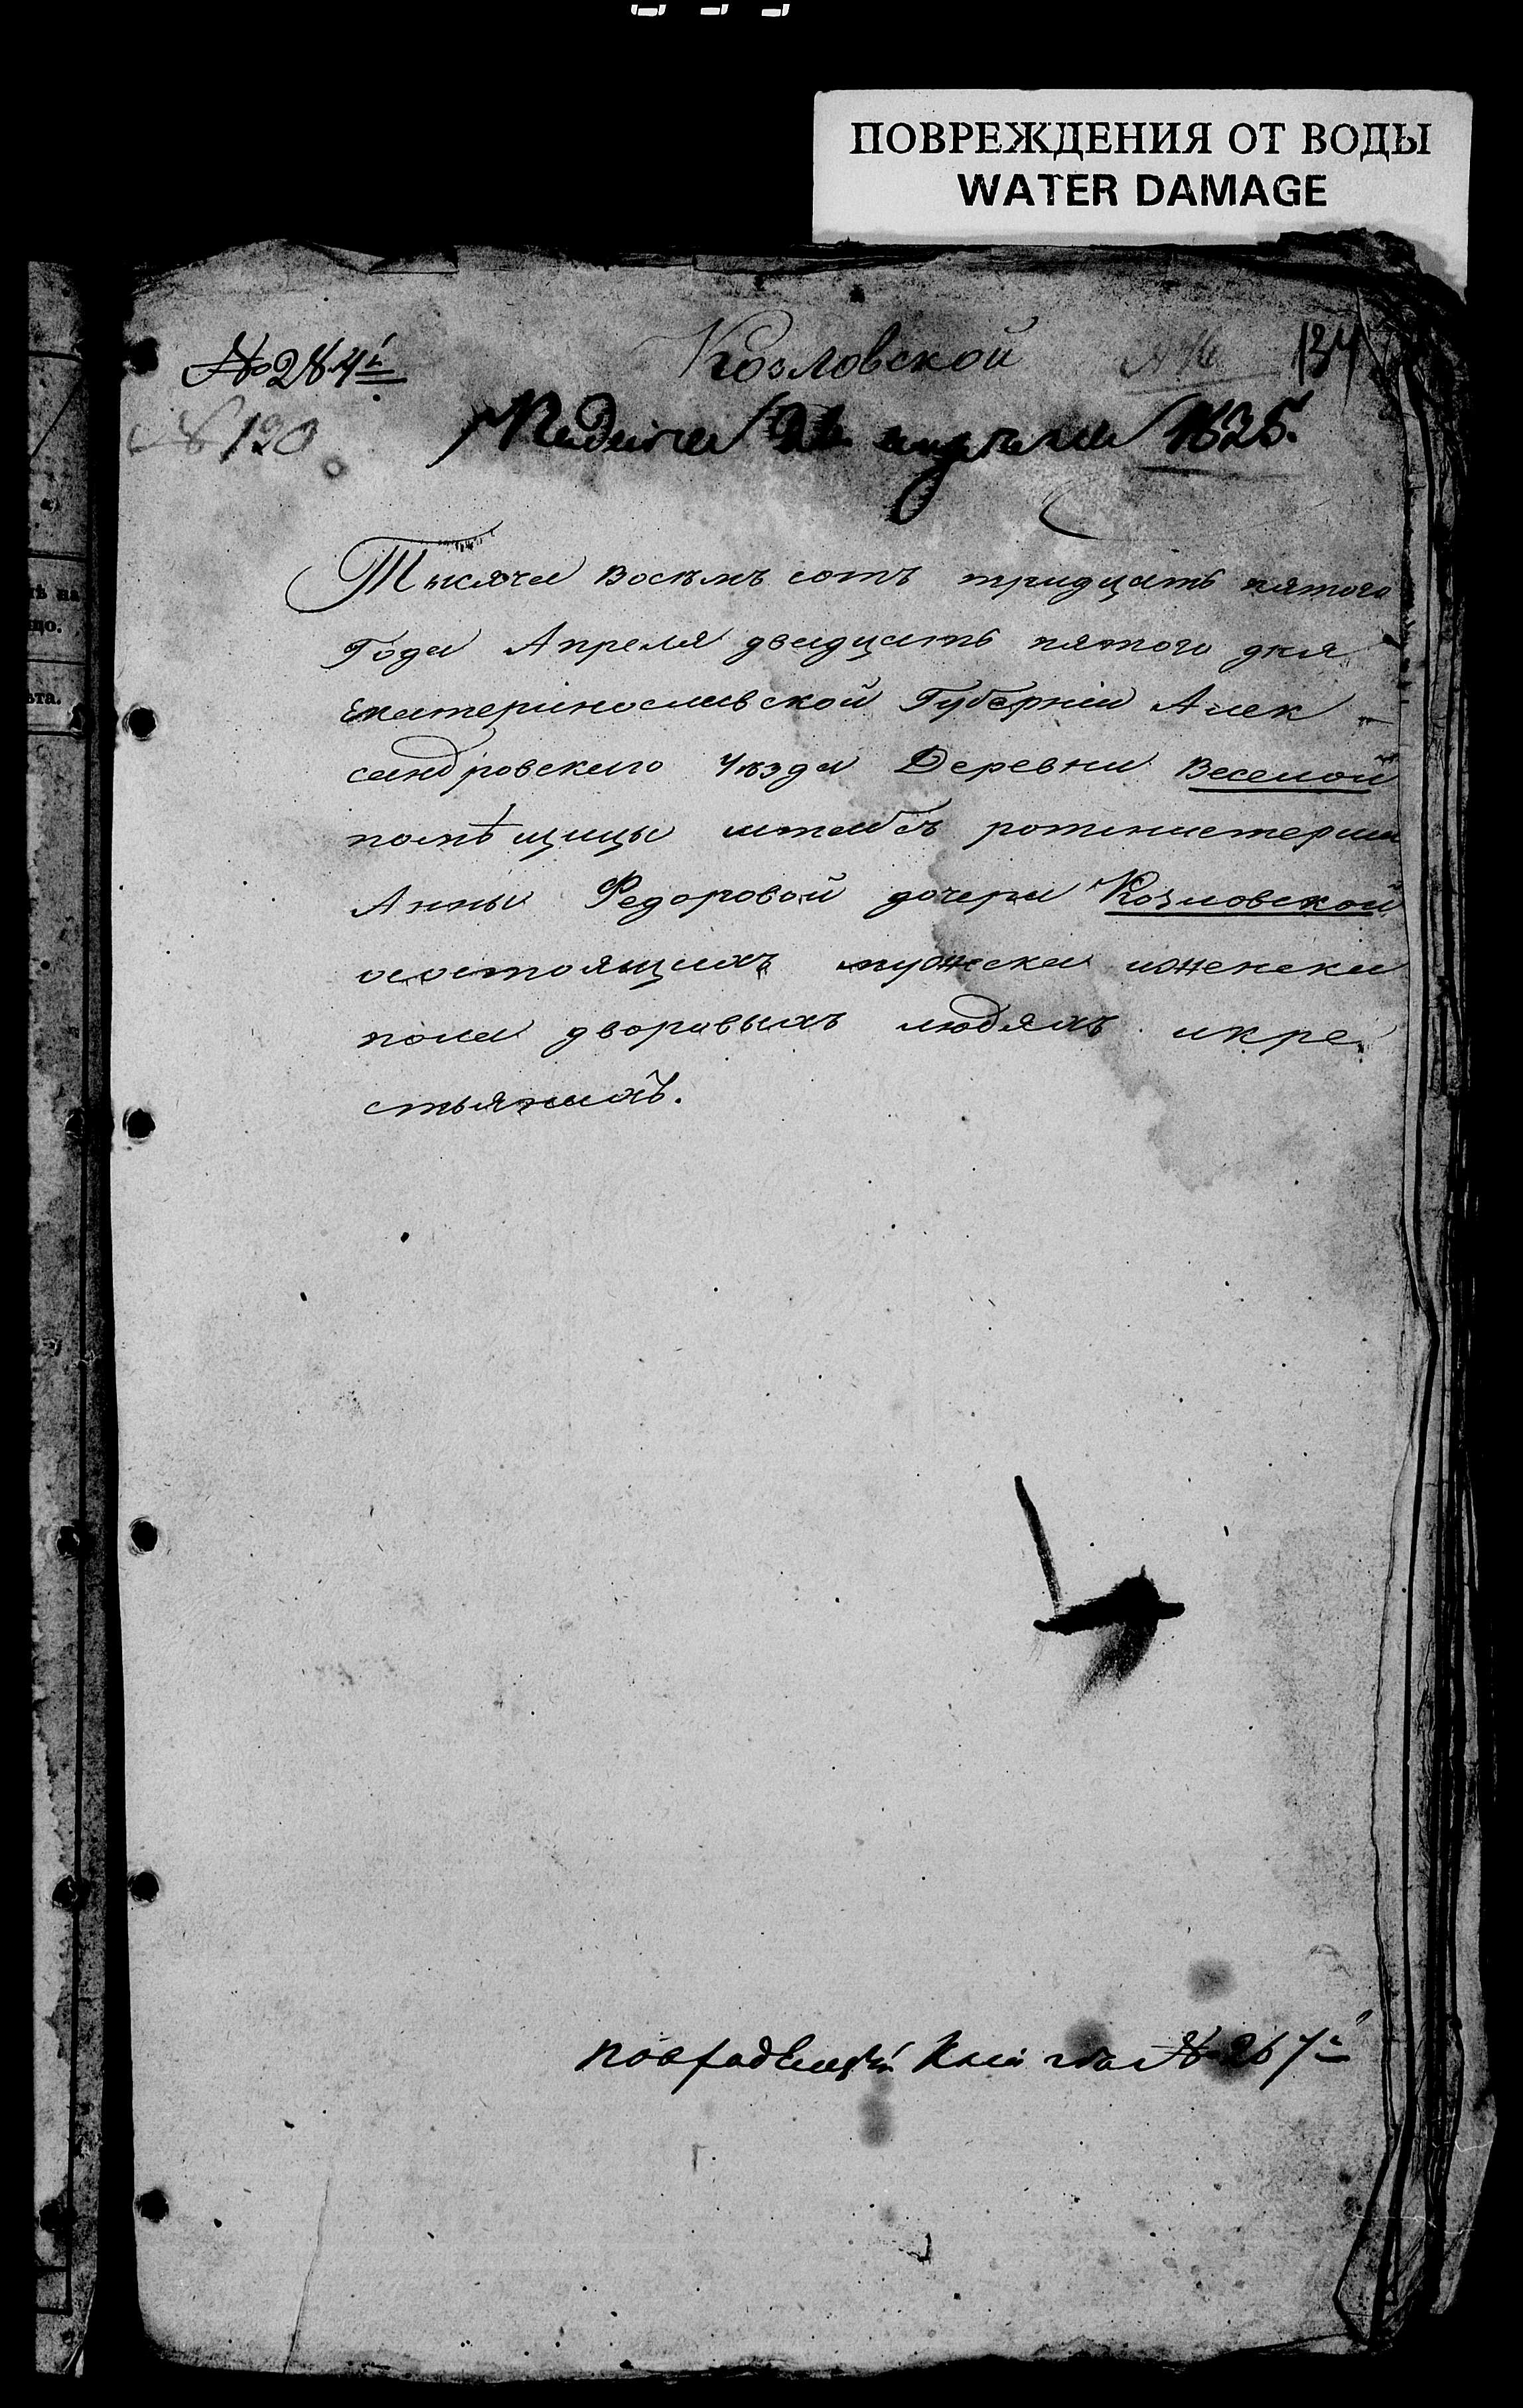 ПОВРЕЖДЕНИЯ ОТ ВОДЫ
WATER DAMAGE
Козловской
134
№ 284й
№ 16
№ 190
Подана апреля 1835.
Тысяча восемь сотъ тридцать пятого
Года Апреля двадцать пятого дня
Екатеринославской Губерніи Алек
сандровского уѣзда Деревни Веселой
помѣщицы штабъ ротмистерши
Анны Федоровой дочери Козловской
осостоящихъ мужска иженска
пола дворовыхъ людяхъ икре
стьянахъ.
№ 267й
ѣ на
цо.
ѣта.